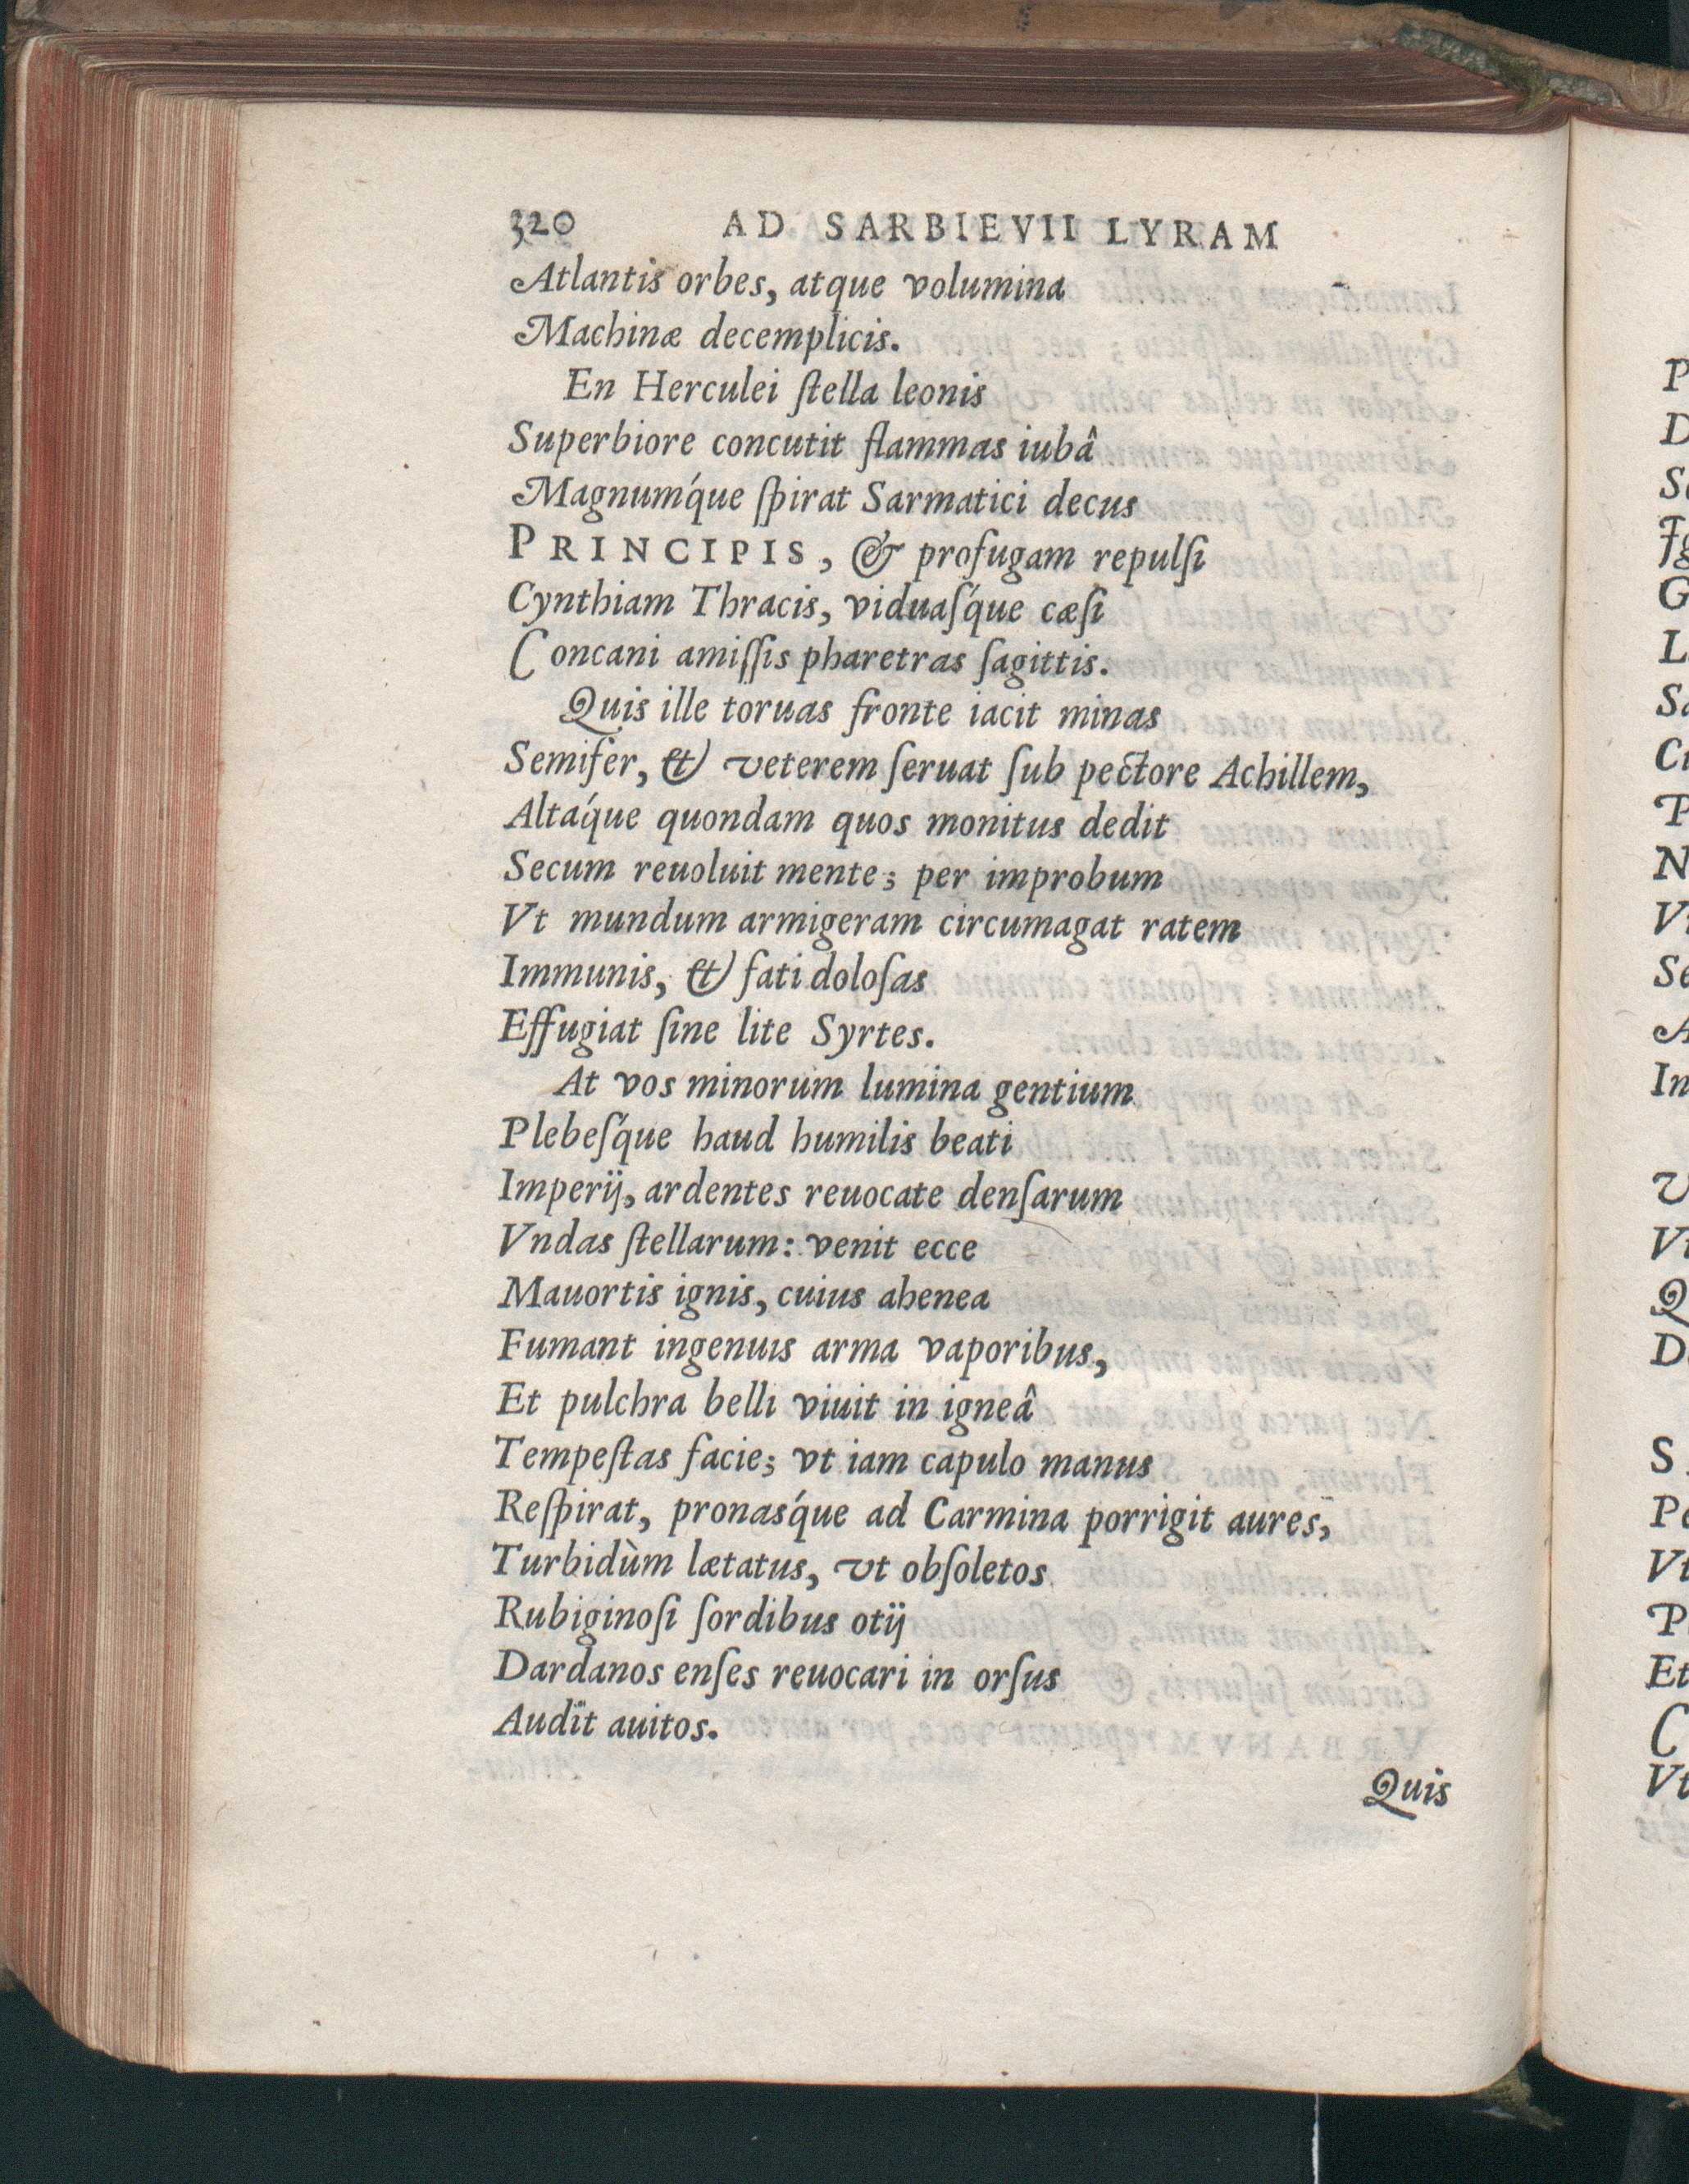 320 AD SARBIEVII LYRAM
Atlantis orbes, atque volumina
Machinæ decemplicis.
En Herculei ſtella leonis
Superbiore concutit flammas iubâ
Magnumq́ue ſpirat Sarmatici decus
PRINCIPIS, & profugam repulſi
Cynthiam Thracis, viduaſq́ue cæſi
Concani amiſſis pharetras ſagittis.
Quis ille toruas fronte iacit minas
Semifer, & veterem ſeruat ſub pectore Achillem,
Altaq́ue quondam quos monitus dedit
Secum reuoluit mente; per improbum
Vt mundum armigeram circumagat ratem
Immunis, & fati doloſas
Effugiat ſine lite Syrtes.
At vos minorum lumina gentium
Plebeſq́ue haud humilis beati
Imperij, ardentes reuocate denſarum
Vndas ſtellarum: venit ecce
Mauortis ignis, cuius ahenea
Fumant ingenuis arma vaporibus,
Et pulchra belli viuit in igneâ
Tempeſtas facie; vt iam capulo manus
Reſpirat, pronasq́ue ad Carmina porrigit aures,
Turbidùm lætatus, vt obſoletos
Rubiginoſi ſordibus otij
Dardanos enſes reuocari in orſus
Audït auitos.
Quis
P
D
G
L
P
N
Se
A
In
V
Q
D
S
P
Et
C